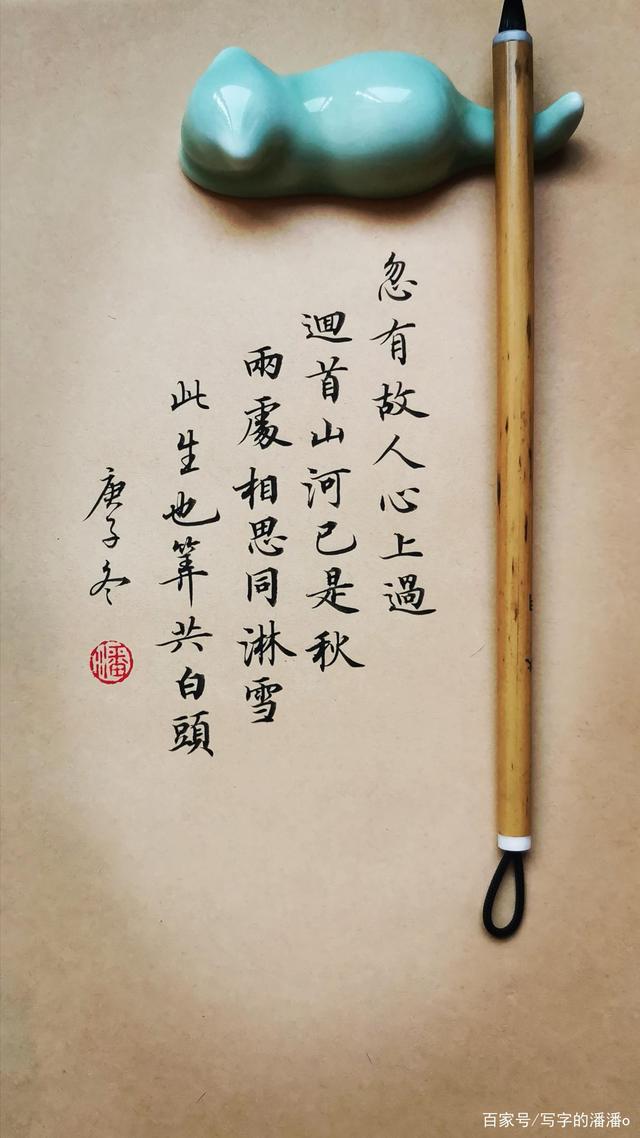 忽有故人心上過
迴首山河已是秋
兩處相思同淋雪
此生也筭共白頭
庚子冬
潘
百家号/写字的潘潘o